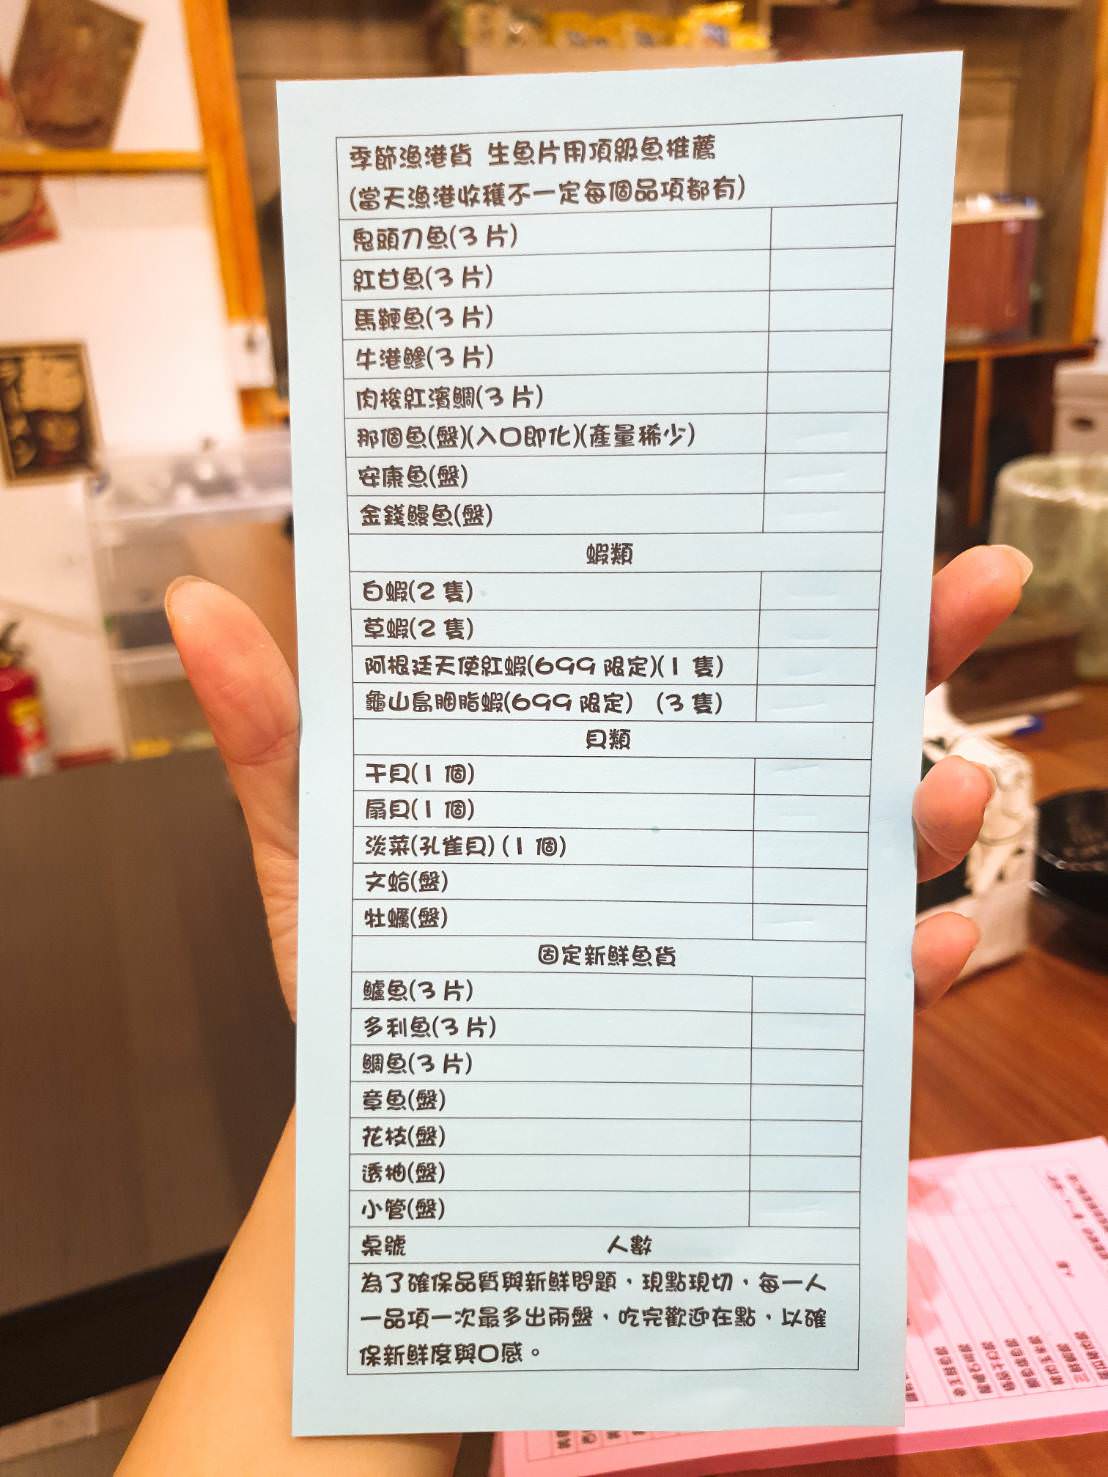 季節漁港貨 生魚片用頂級魚推薦
(當天漁港收穫不一定每個品項都有)
鬼頭刀魚(3片)
紅甘魚(3片)
馬鞭魚(3片)
牛港鰺(3片)
肉梭紅濱鯛(3片)
那個魚(盤)(入口即化)(產量稀少)
安康魚(盤)
金錢鰻魚(盤)
蝦類
白蝦(2隻)
草蝦(2隻)
阿根廷天使紅蝦(699限定)(1隻)
龜山島胭脂蝦(699限定) (3隻)
貝類
干貝(1個)
扇貝(1個)
淡菜(孔雀貝)(1個)
文蛤(盤)
牡蠣(盤)
固定新鮮魚貨
鱸魚(3片)
多利魚(3片)
鯛魚(3片)
章魚(盤)
花枝(盤)
透抽(盤)
小管(盤)
桌號 人數
為了確保品質與新鮮問題，現點現切，每一人
一品項一次最多出兩盤，吃完歡迎在點，以確
保新鮮度與口感。